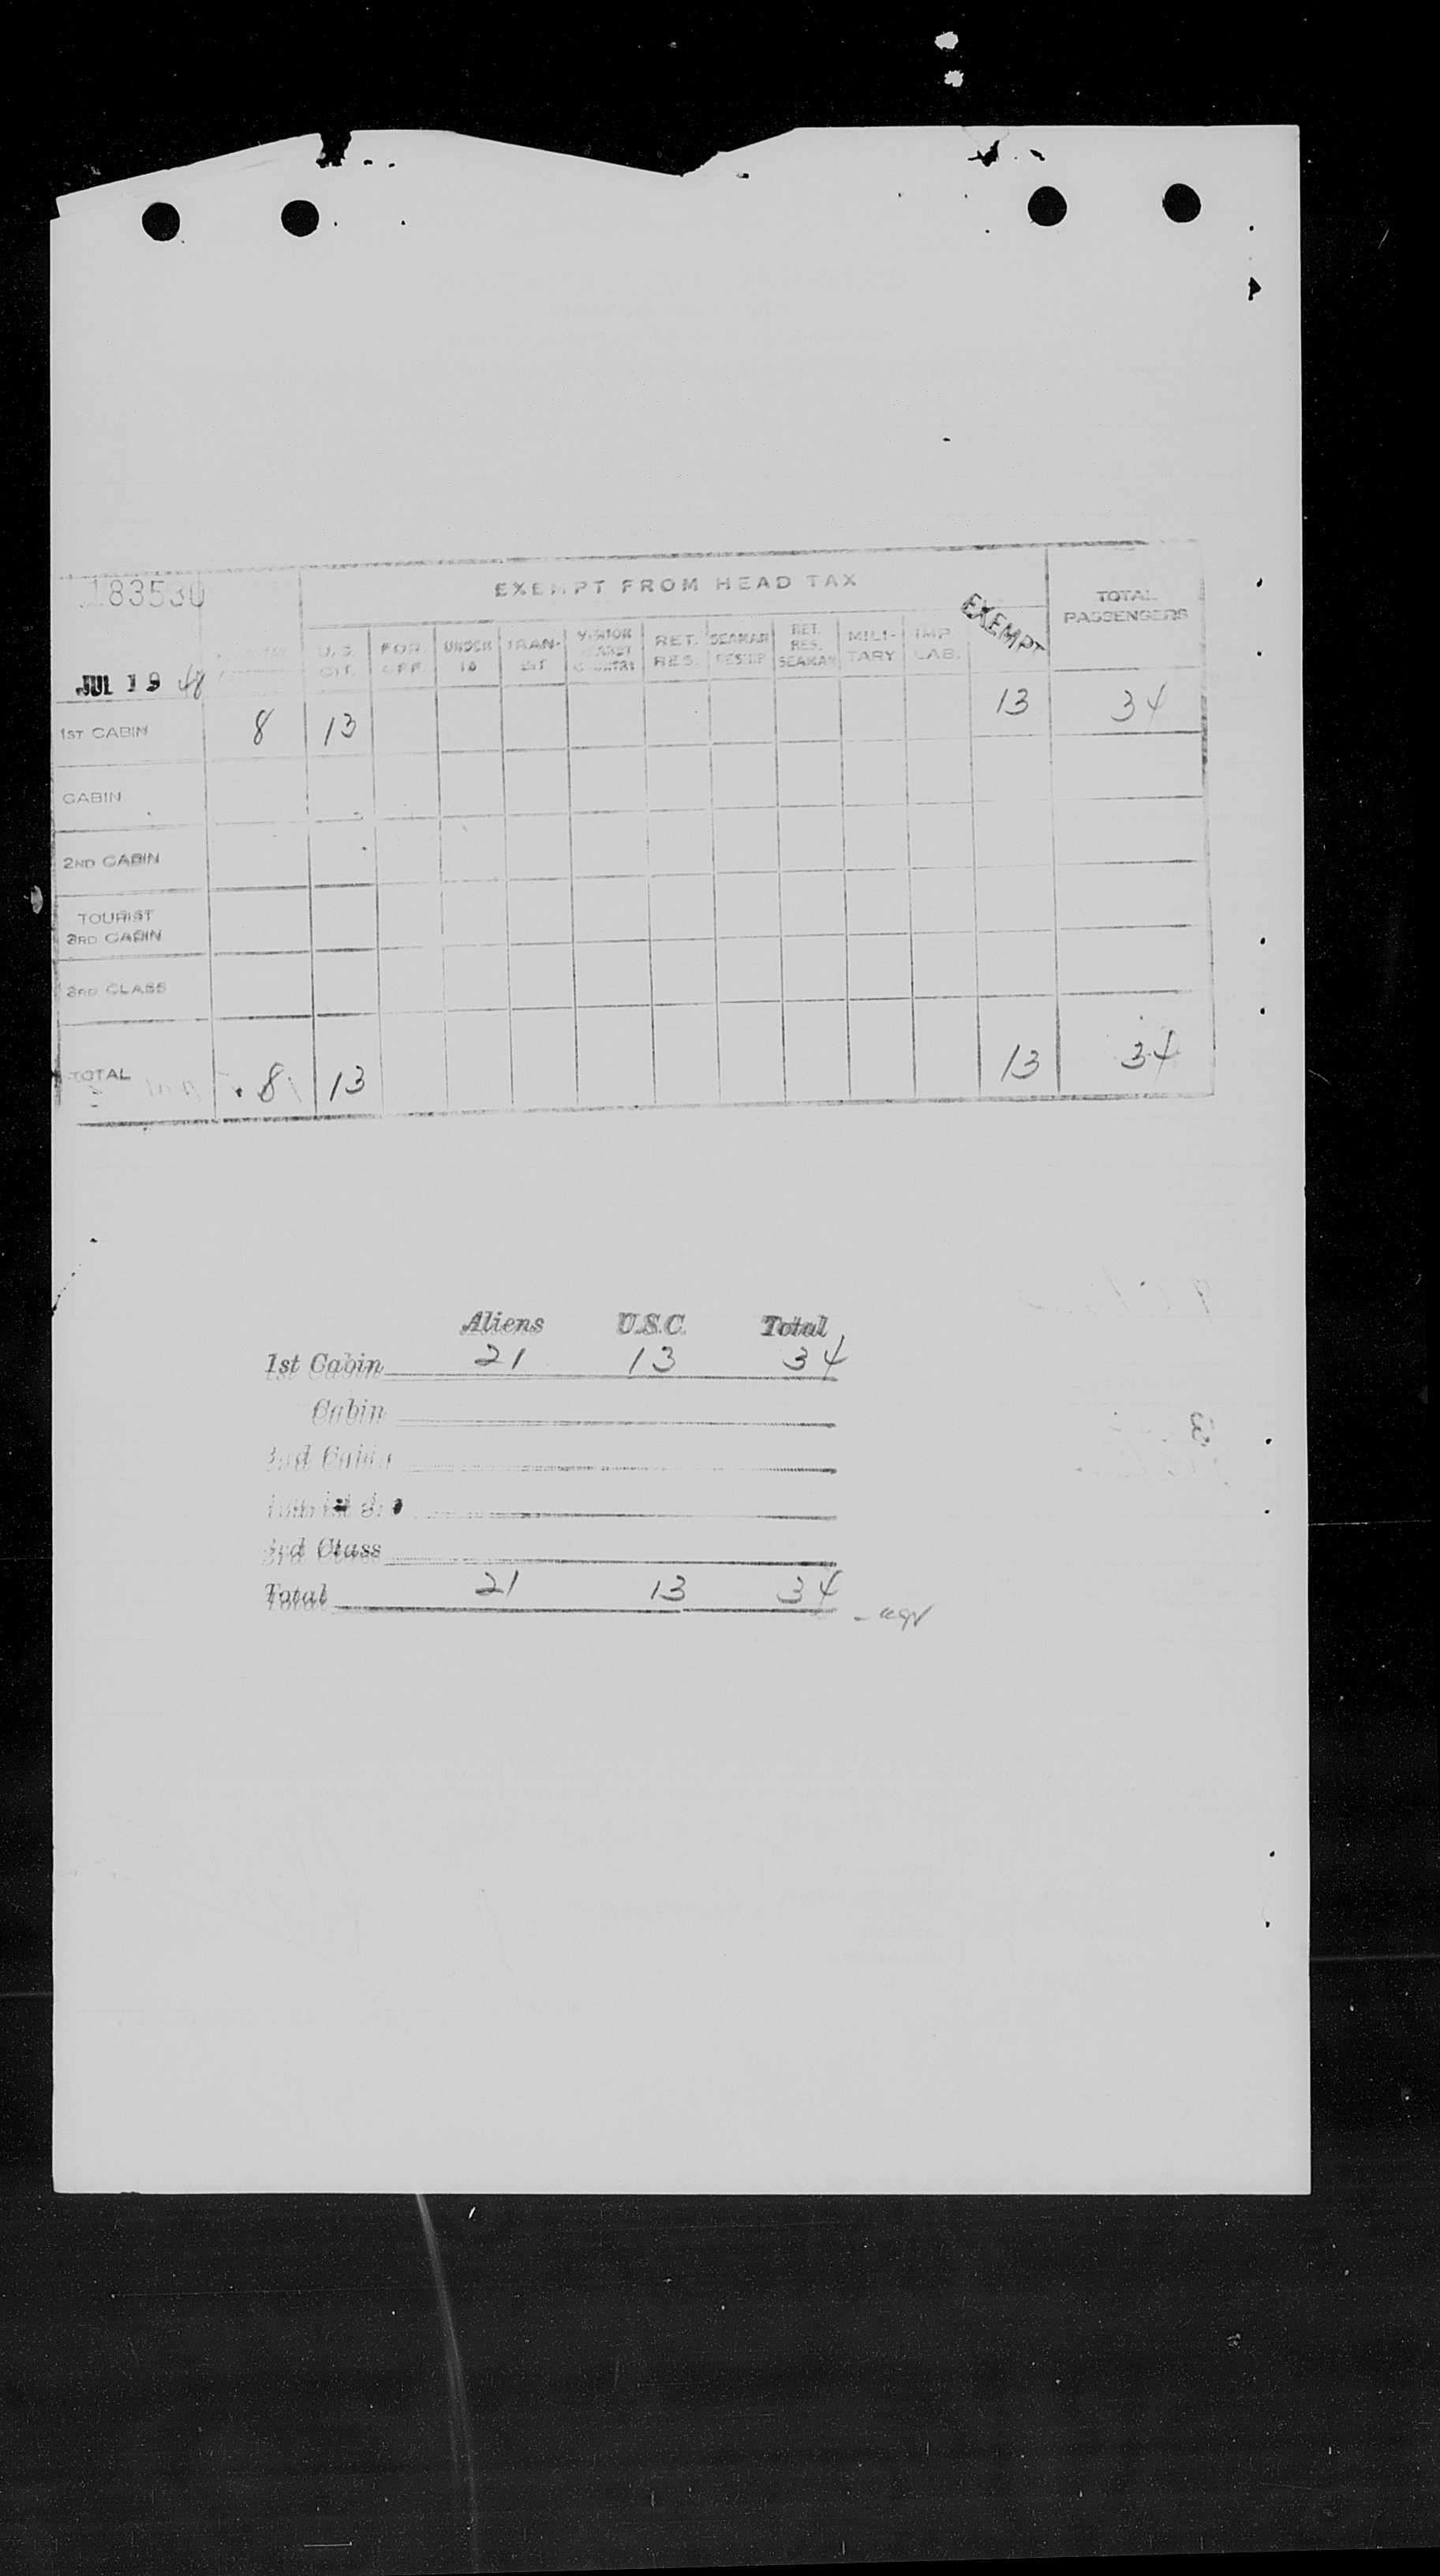 183530
EXEMPT FROM HEAD TAX
TOTAL PASSENGERS
U.S. CIT. FOR. OFF. UNDER 16 TRAN-SIT RET. RES. SEAMAN RET. RES. SEAMAN MILI-TARY IMP. LAB. EXEMPT
JUL 19 48
1ST CABIN 8 13 13 34
CABIN
2ND CABIN
TOURIST
3RD CABIN
3RD CLASS
TOTAL 8 13 13 34
Aliens U.S.C. Total
1st Cabin 21 13 34
Cabin
2nd Cabin
3rd Class
Total 21 13 34